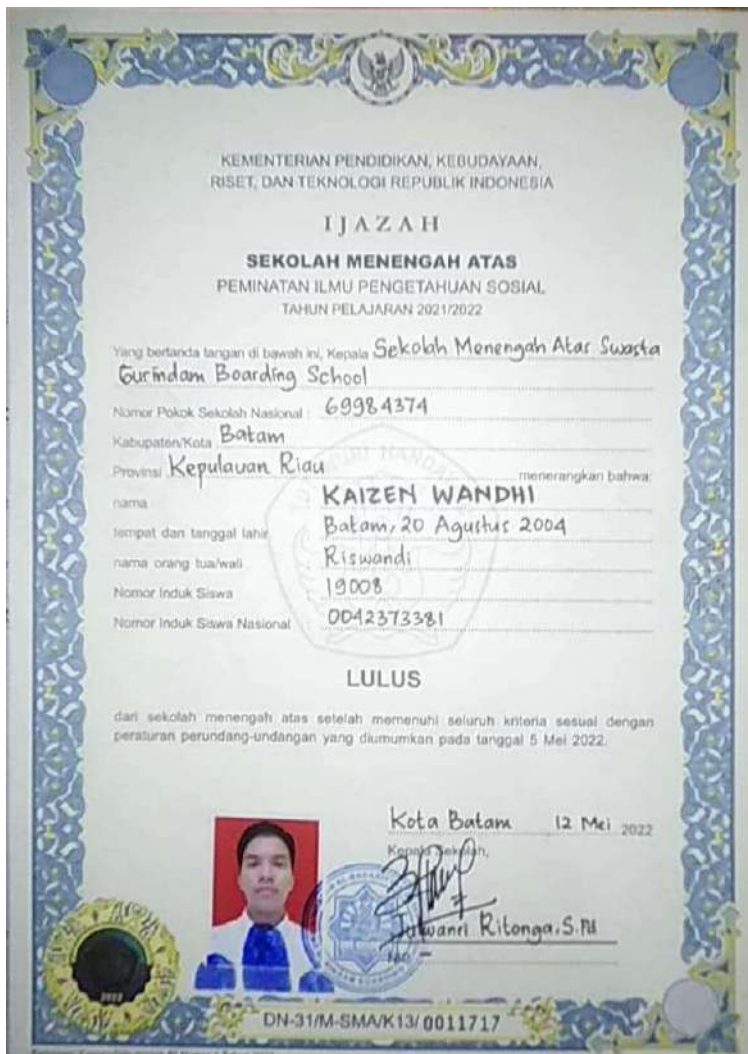 KEMENTERIAN PENDIDIKAN, KEBUDAYAAN,
RISET, DAN TEKNOLOGI REPUBLIK INDONESIA
IJAZAH
SEKOLAH MENENGAH ATAS
PEMINATAN ILMU PENGETAHUAN SOSIAL
TAHUN PELAJARAN 2021/2022
Yang bertanda tangan di bawah ini, Kepala Sekolah Menengah Atas Swasta
Gurindam Boarding School
Nomor Pokok Sekolah Nasional : 69984374
Kabupaten/Kota Batam
Provinsi Kepulauan Riau menerangkan bahwa:
nama : KAIZEN WANDHI
tempat dan tanggal lahir : Batam, 20 Agustus 2004
nama orang tua/wali : Riswandi
Nomor Induk Siswa : 19008
Nomor Induk Siswa Nasional : 0042373381
LULUS
dari sekolah menengah atas setelah memenuhi seluruh kriteria sesuai dengan
peraturan perundang-undangan yang diumumkan pada tanggal 5 Mei 2022.
Kota Batam 12 Mei 2022
Kepala Sekolah,
Ritonga, S.Pd
2022
DN-31/M-SMA/K13/0011717